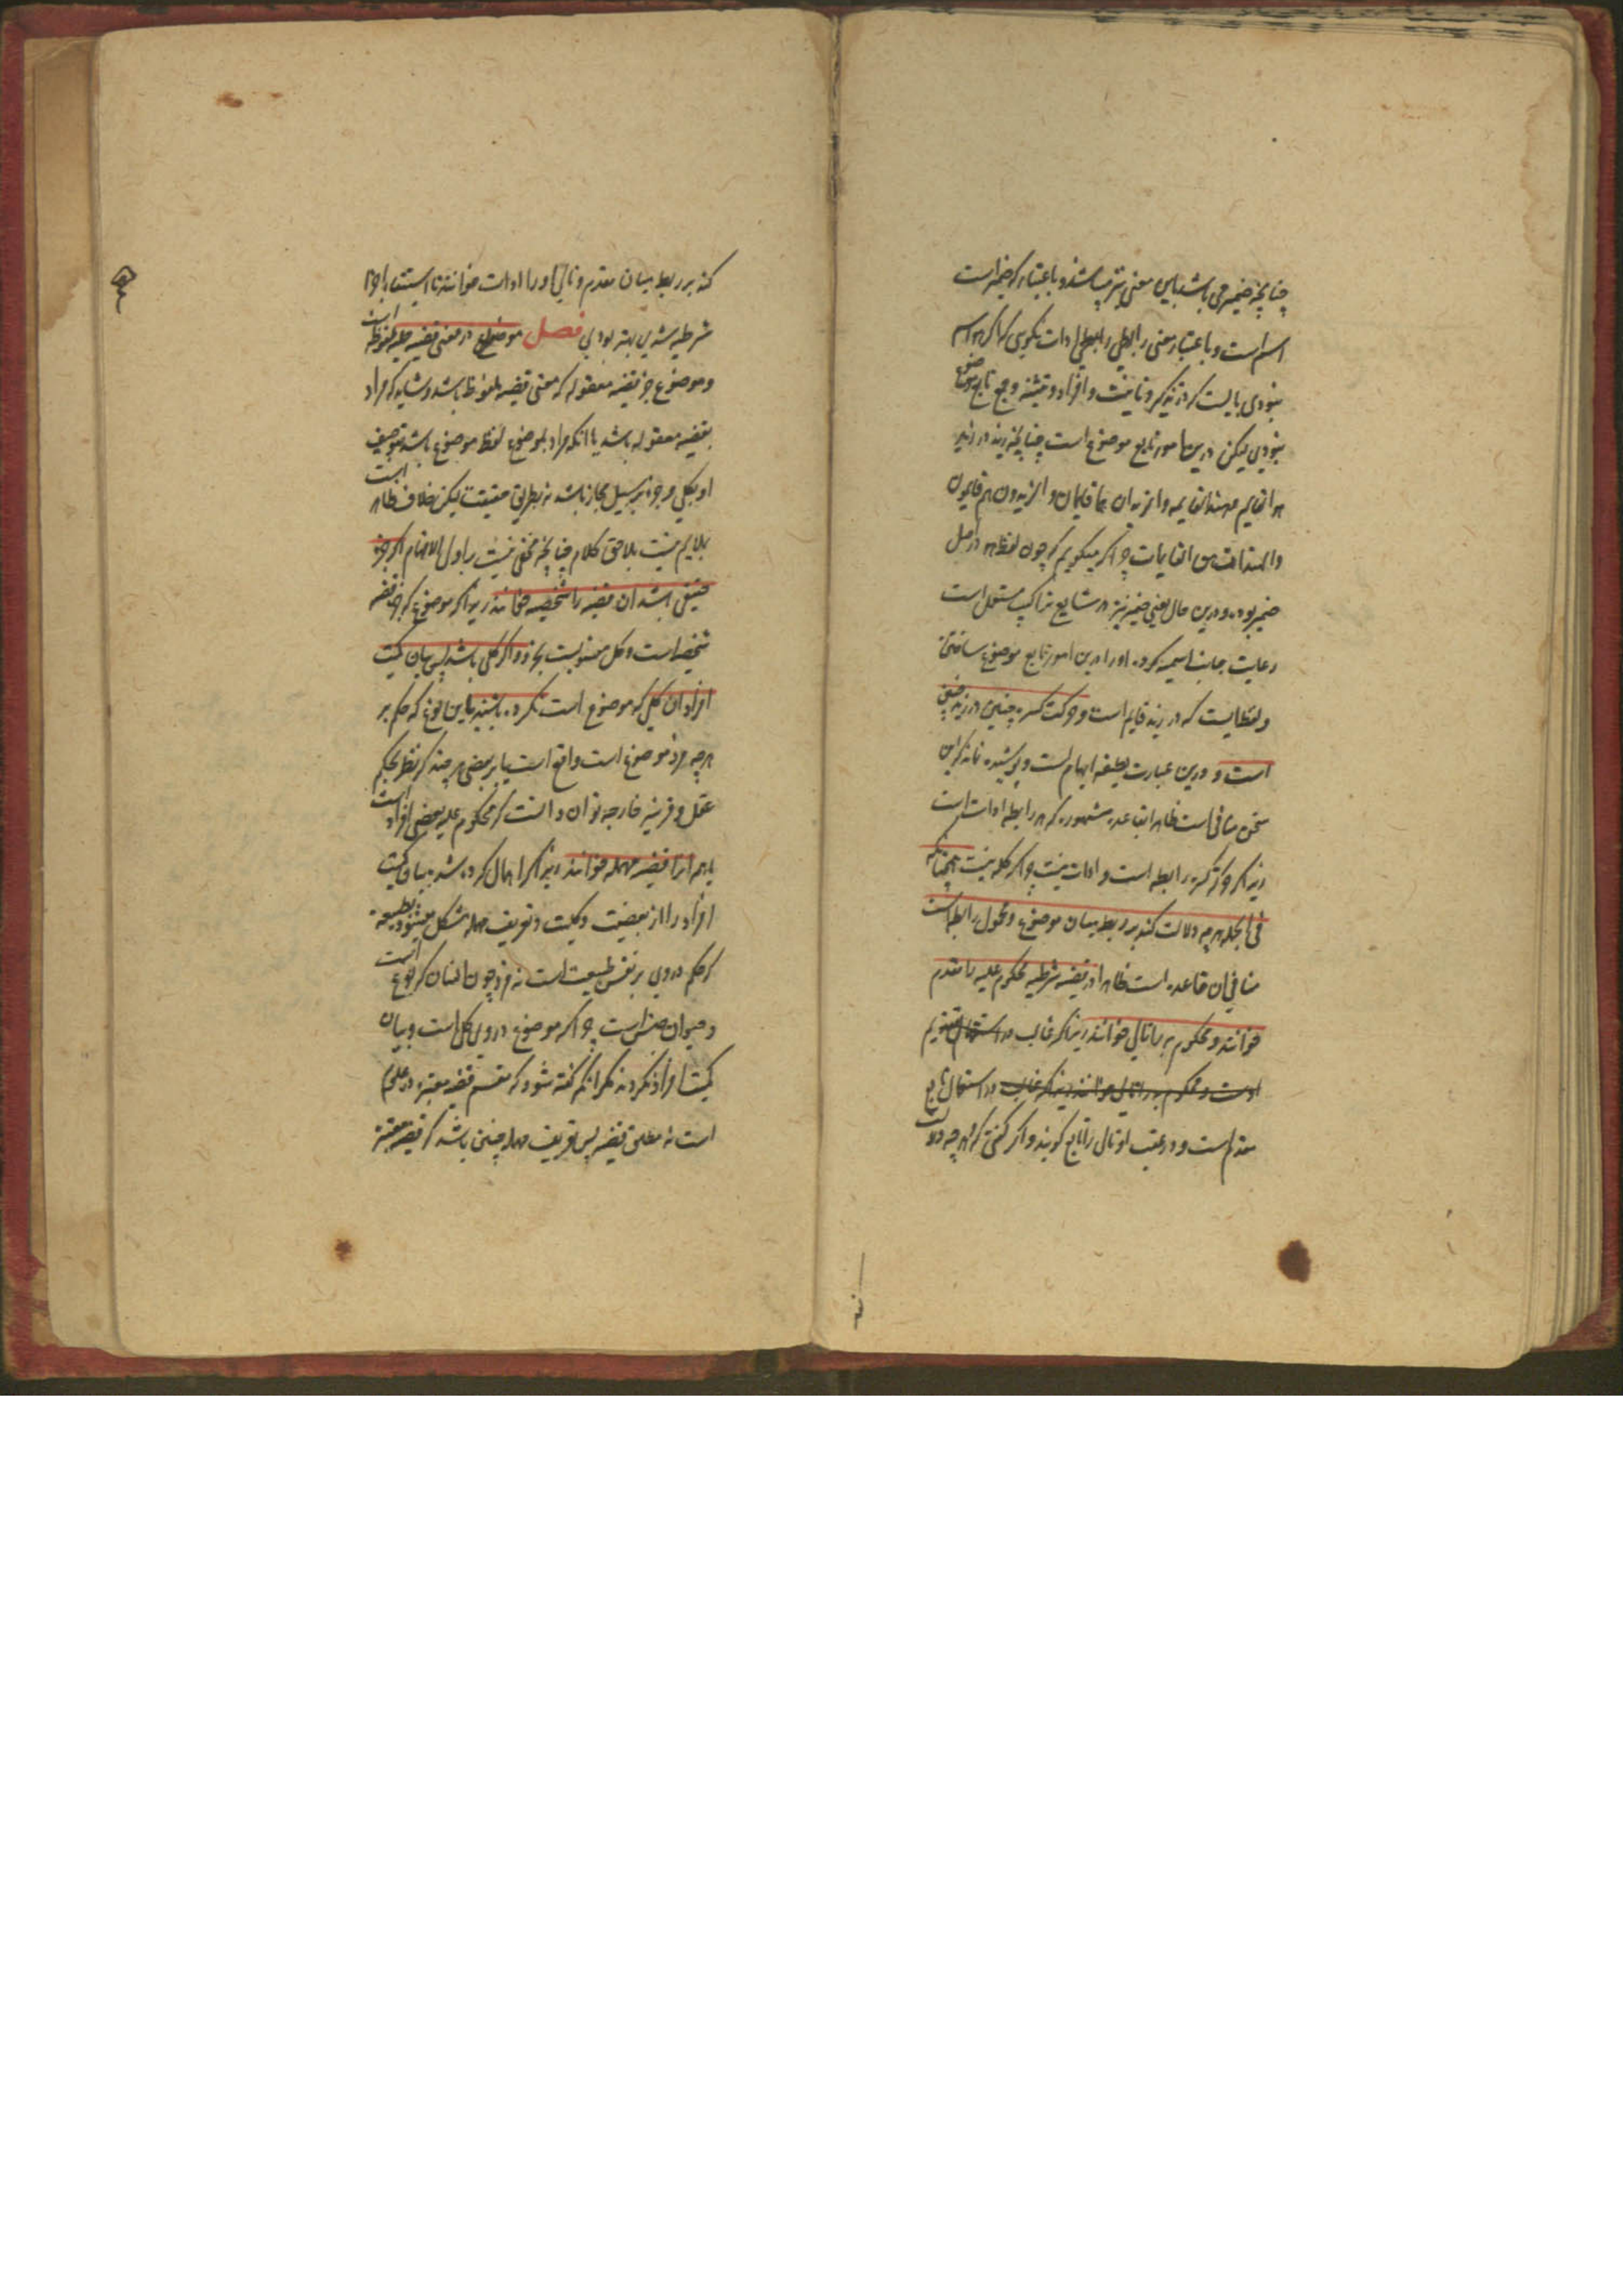 چنانچه ضمیر می باشد باین معنی نیز میباشد و باعتبار که ضمیر است
اسم است و باعتبار معنی رابطی رابطی ادات نکویی که اگر هو اسم
نبودی بایست که در تذکیر و تانیث و افراد و تثنیه و جمع تابع موضوع
نبودی لیکن درین امور تابع موضوع است چنانچه زید در زید
هو القایم و هند القایمه والزیدان هما قایمان والزیدون هم قایمون
والهندات هن القایمات چرا که میگویم که چون لفظ هو در اصل
ضمیر بوده و درین حال یعنی ضمیر نیز در شایع تراکیب مستعمل است
رعایت جانب اسمیه کرده او را درین امور تابع موضوع ساختن
و لفظ است که در زید قایم است و حرکت کسره چنین در زید
است و درین عبارت لطیفه ایهام است و پوشیده نماند که این
سخن منافی است ظاهرا بقاعده مشهوره که هر رابطه ادات است
زیرا که حرکت کسره رابطه است و ادات نیست چرا که کلمه نیست همچنانکه
فی الجمله هر چه دلالت کند بر ربط میان موضوع و محمول رابطه است
منافی ان قاعده است ظاهرا در قضیه شرطیه محکوم علیه را مقدم
خوانند و محکوم به را تالی خوانند زیرا که غالب در استعمال تقدیم
است و محکوم به را تالی خوانند زیرا که غالب در استعمال تابع
مقدم است و در عقب او تالی را تابع گویند و اگر گفتی که هر چه دلالت
کند بر ربط میان مقدم و تالی او را ادات خوانند تا استیفا اجزا
شرطیه شدی بهتر بودی فصل موضوع در معنی قضیه حملیه ملفوظه است
و موضوع جز قضیه معقوله که معنی قضیه ملفوظ باشد و شاید که مراد
بقضیه معقوله باشد یا آنکه مراد بموضوع لفظ موضوع باشد و توصیف
او بکلی و جزئی بر سبیل مجاز باشد نه بطریق حقیقت لیکن خلاف ظاهر است
ملایم نیست بلاحق کلام چنانچه مخفی نیست بر اول الافهام اگر جزئی
حقیقی باشد ان قضیه را شخصیه خوانند زیرا که موضوع که جز قضیه
شخصی است و کل منسوبست بجزو و اگر کلی باشد پس بیان کمیت
افراد ان کلی که موضوع است نکرده باشند باین نوع که حکم بر
هر چه فرد موضوع است واقع است یا بر بعضی هر چند که نظر بحکم
عقل و قرینه خارجه توان دانست که محکوم علیه بعضی افراد است
یا همه انرا قضیه مهمله خوانند زیرا که اهمال کرده شد بیان کمیت
افراد را از بعضیت و کلیت و تعریف مهمله مشکل میشود بطبیعه
که حکم در وی بر نفس طبیعت است نه فرد چون انسان که نوع است
و حیوان جنس است چرا که موضوع در وی کلی است و بیان
کمیت افراد نکرده مگر انکه گفته شود که مقسم قضیه معتبره در علوم
است نه مطلق قضیه پس تعریف مهمله چنین باشد که قضیه معتبره